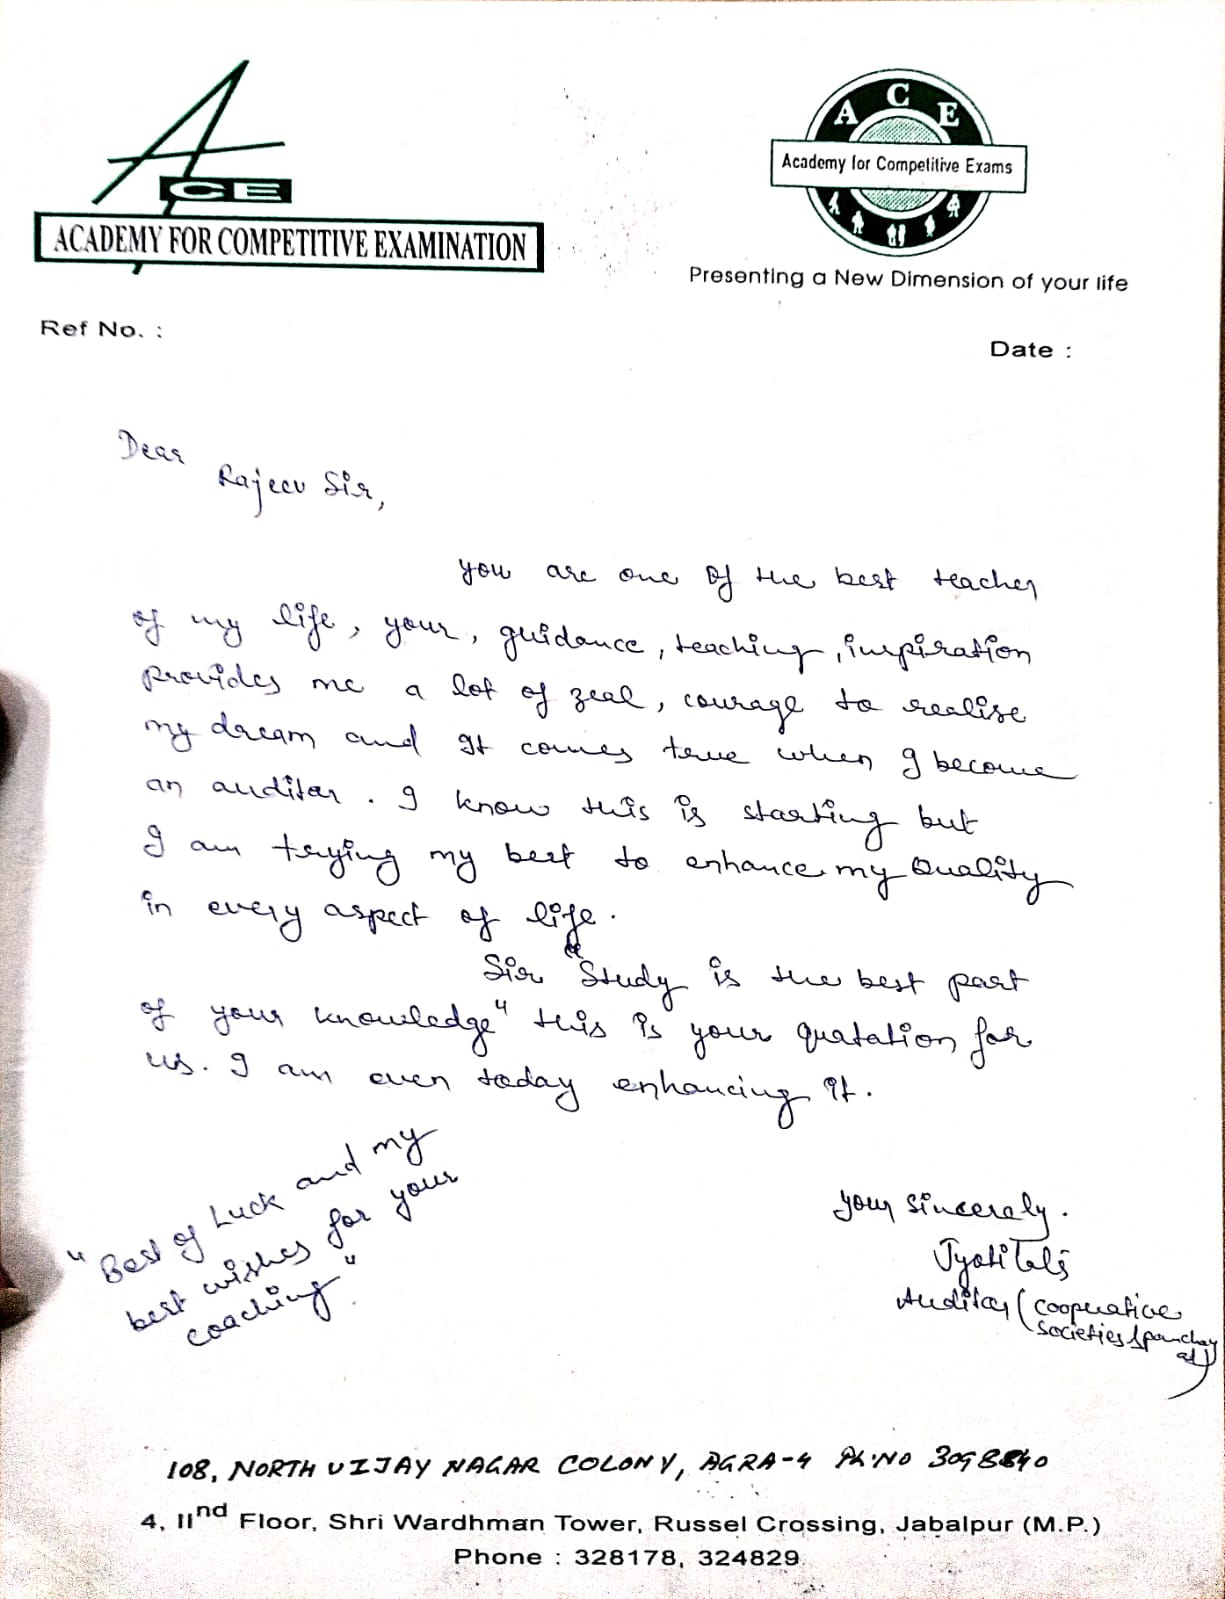 A
CE
ACADEMY FOR COMPETITIVE EXAMINATION
A C E
Academy for Competitive Exams
Presenting a New Dimension of your life
Ref No. :
Date :
Dear
Rajeev Sir,
you are one of the best teacher
of my life, your, guidance, teaching, inspiration
provides me a lot of zeal, courage to realise
my dream and It comes true when I become
an auditor. I know this is starting but
I am trying my best to enhance my Quality
in every aspect of life.
Sir "Study is the best part
of your knowledge" this is your quatation for
us. I am even today enhancing it.
"Best of Luck and my
best wishes for your
coaching"
your sincerely.
Jyoti
Auditor (cooperative
societies
108, NORTH VIJAY NAGAR COLONY, AGRA-4 Ph.NO
4, IInd Floor, Shri Wardhman Tower, Russel Crossing, Jabalpur (M.P.)
Phone : 328178, 324829